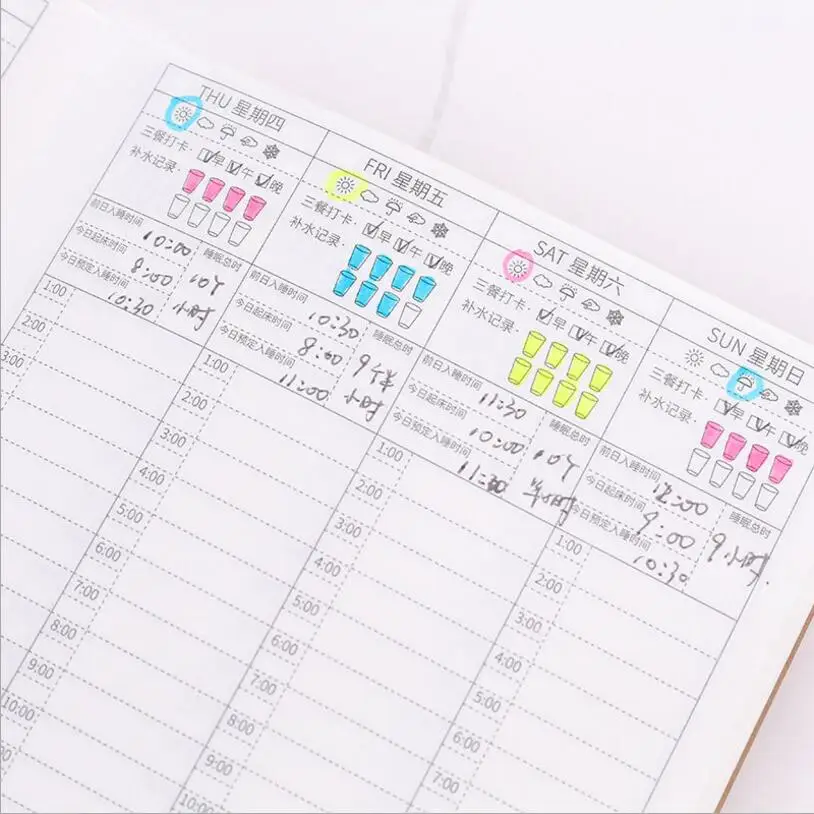 THU 星期四
三餐打卡· 早 午 晚
补水记录·
前日入睡时间 10:00 睡眠总时
今日起床时间 8:00 10个
今日预定入睡时间 10:30 小时
1:00
2:00
3:00
4:00
5:00
6:00
7:00
8:00
9:00
10:00
FRI 星期五
三餐打卡· 早 午 晚
补水记录·
前日入睡时间 10:30 睡眠总时
今日起床时间 8:00 9个半
今日预定入睡时间 11:00 小时
1:00
2:00
3:00
4:00
5:00
6:00
7:00
8:00
9:00
10:00
SAT 星期六
三餐打卡· 早 午 晚
补水记录·
前日入睡时间 11:30 睡眠总时
今日起床时间 10:00 10个
今日预定入睡时间 11:30 半小时
1:00
2:00
3:00
4:00
5:00
6:00
7:00
SUN 星期日
三餐打卡· 早 午 晚
补水记录·
前日入睡时间 12:00 睡眠总时
今日起床时间 9:00 9小时
今日预定入睡时间 10:30